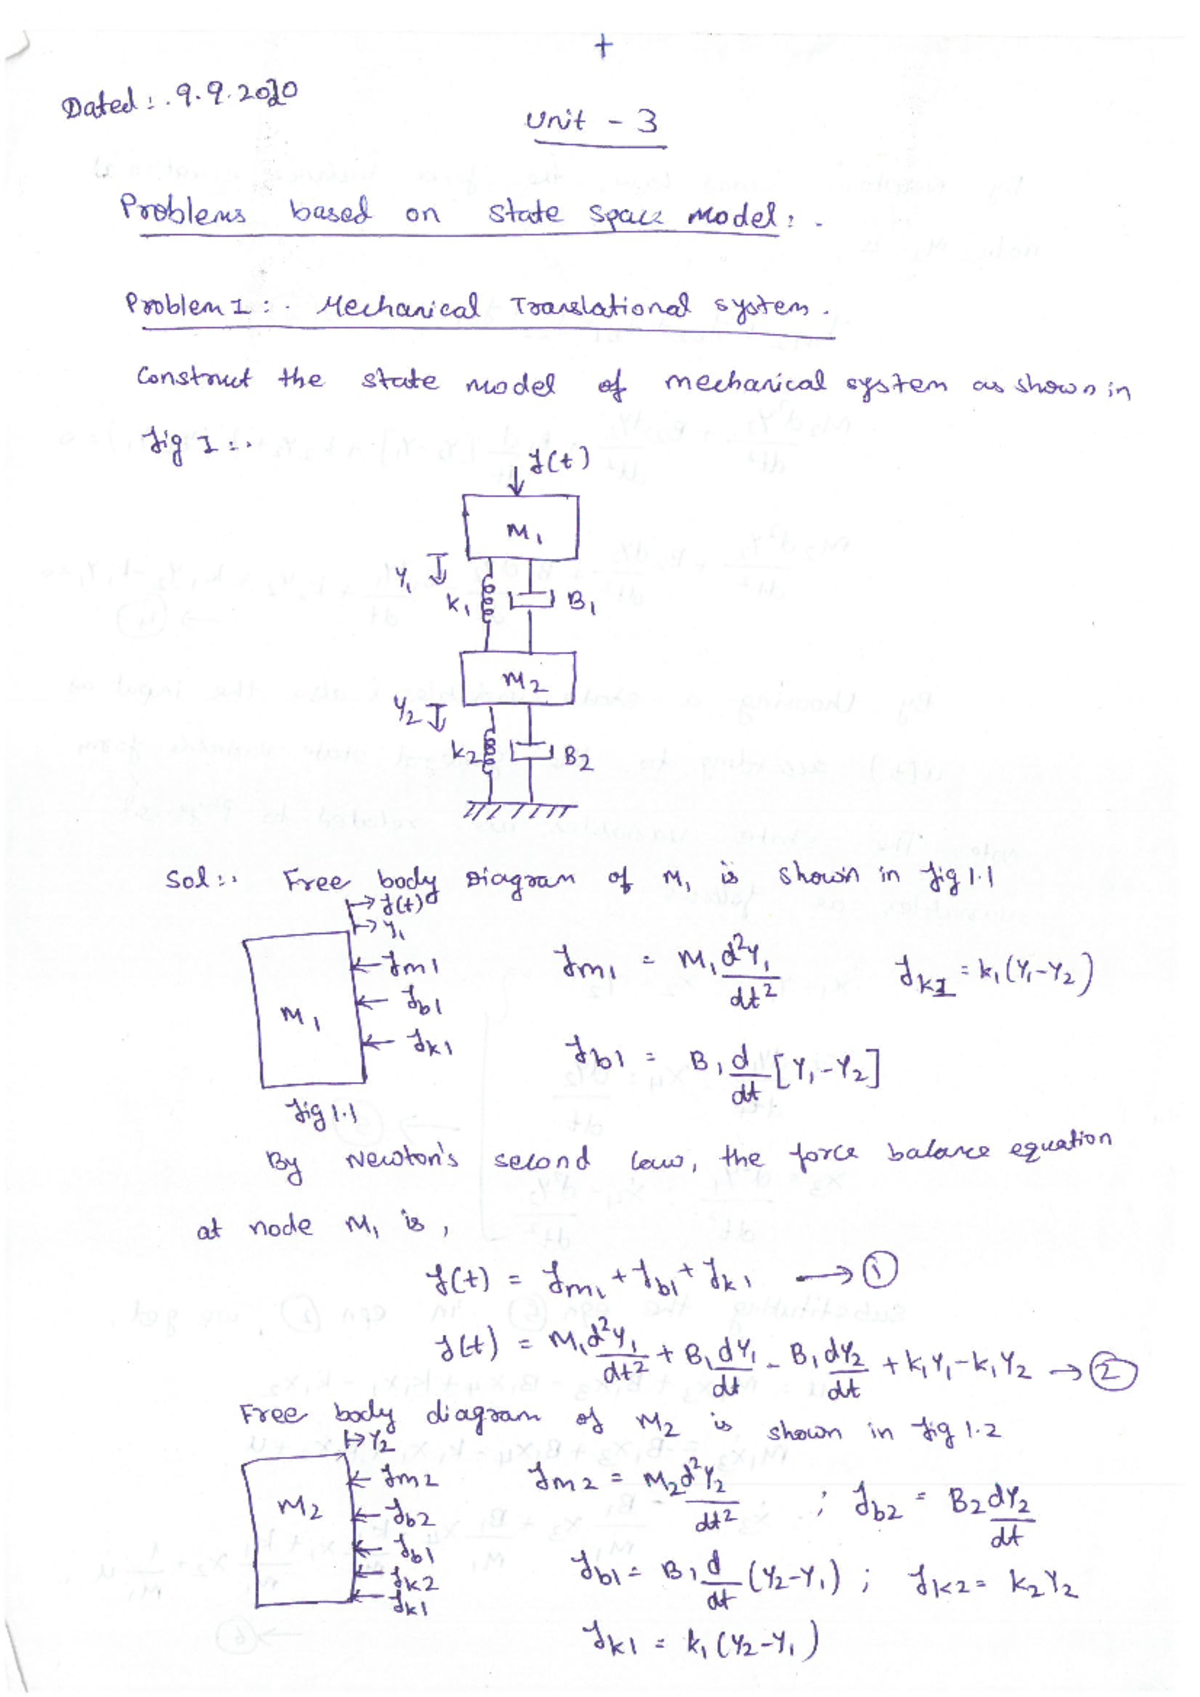 +
Dated :. 9.9.2020
Unit - 3
Problems based on state space model :.
Problem 1 :. Mechanical Translational system.
Construct the state model of mechanical system as shown in
fig 1 :.
f(t)
M1
Y1
K1
B1
M2
Y2
K2
B2
Sol :. Free body Diagram of M1 is shown in fig 1.1
f(t)
Y1
fm1
fb1
fk1
M1
fig 1.1
fm1 = M1 d²Y1/dt²
fk1 = k1(Y1-Y2)
fb1 = B1 d/dt [Y1-Y2]
By Newton's second law, the force balance equation
at node M1 is,
f(t) = fm1 + fb1 + fk1 → ①
f(t) = M1 d²Y1/dt² + B1 dY1/dt - B1 dY2/dt + k1Y1 - k1Y2 → ②
Free body diagram of M2 is shown in fig 1.2
Y2
M2
fm2
fb2
fb1
fk2
fk1
fm2 = M2 d²Y2/dt² ; fb2 = B2 dY2/dt
fb1 = B1 d/dt (Y2-Y1) ; fk2 = K2Y2
fk1 = k1(Y2-Y1)